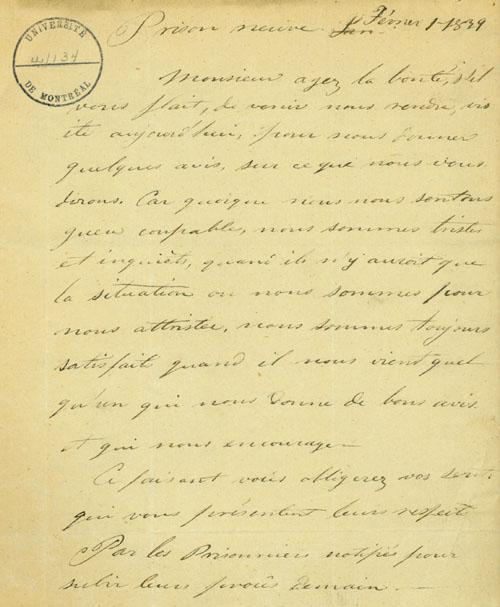 UNIVERSITÉ
DE MONTRÉAL
Prison neuve. Jan. Février 1-1839
Monsieur ayez la bonté, s'il
vous plait, de venir nous rendre, vis
ite aujourd'hui, pour nous donner
quelques avis, sur ce que nous vous
dirons. Car quoique nous nous sentons
peu coupable, nous sommes tristes
et inquiets, quand il n'y auroit que
la situation ou nous sommes pour
nous attrister, nous sommes toujours
satisfait quand il nous vient quel
qu'un qui nous donne de bons avis
et qui nous encourage—
Ce faisant vous obligerez vos
qui vous présentent leurs respect
Par les Prisonniers notifiés pour
subir leurs procès demain.—